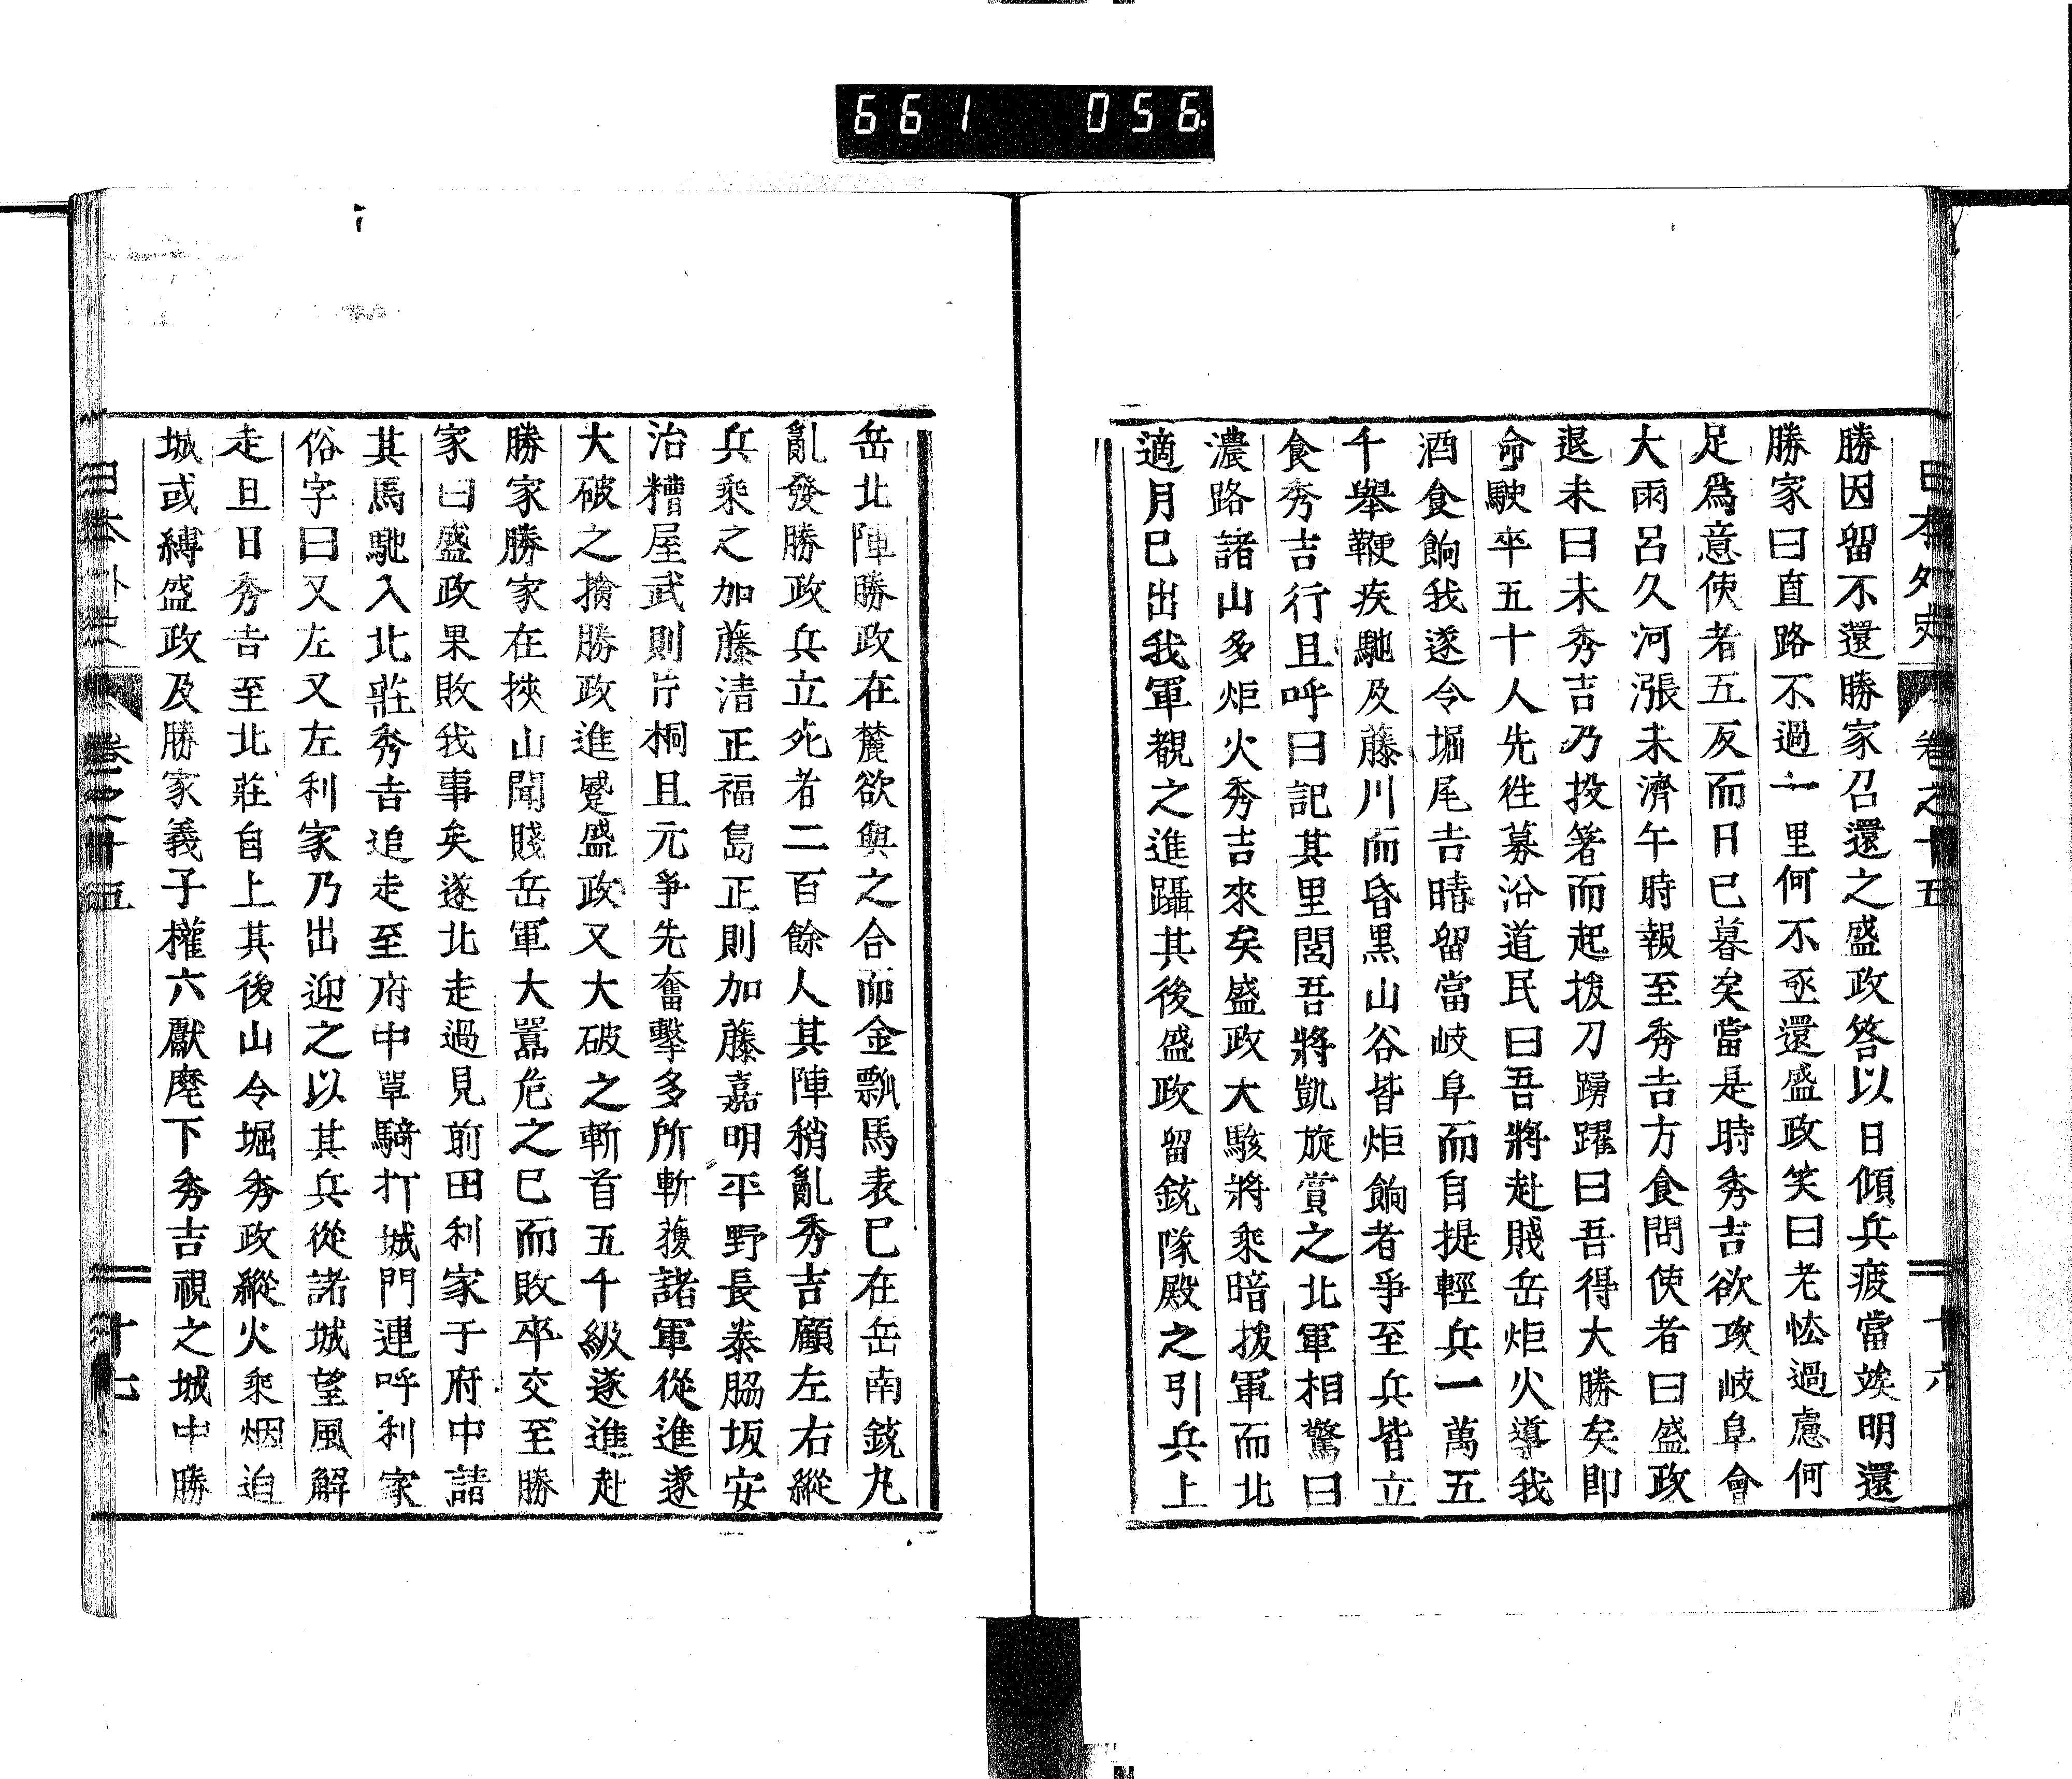 661 056
日本外史 卷之十五 十六
勝因留不還勝家召還之盛政答以日傾兵疲當竢明還
勝家曰直路不過一里何不亟還盛政笑曰老怯過慮何
足爲意使者五反而日已暮矣當是時秀吉欲攻岐阜會
大雨呂久河漲未濟午時報至秀吉方食問使者曰盛政
退未曰未秀吉乃投箸而起拔刀踴躍曰吾得大勝矣即
命駛卒五十人先徃募沿道民曰吾將赴賤岳炬火導我
酒食餉我遂令堀尾吉晴留當岐阜而自提輕兵一萬五
千舉鞭疾馳及藤川而昏黒山谷皆炬餉者爭至兵皆立
食秀吉行且呼曰記其里閭吾將凱旋賞之北軍相驚曰
濃路諸山多炬火秀吉來矣盛政大駭將乘暗拔軍而北
適月已出我軍覩之進躡其後盛政留銃隊殿之引兵上
岳北陣勝政在麓欲與之合而金瓢馬表已在岳南銃丸
亂發勝政兵立死者二百餘人其陣稍亂秀吉顧左右縱
兵乘之加藤清正福島正則加藤嘉明平野長泰脇坂安
治糟屋武則片桐且元爭先奮擊多所斬獲諸軍從進遂
大破之擒勝政進蹙盛政又大破之斬首五千級遂進赴
勝家勝家在挾山聞賤岳軍大嚣危之已而敗卒交至勝
家曰盛政果敗我事矣遂北走過見前田利家于府中詰
其馬馳入北莊秀吉追走至府中單騎打城門連呼利家
俗字曰又左又左利家乃出迎之以其兵從諸城望風解
走旦日秀吉至北莊自上其後山令堀秀政縱火乘烟迫
城或縛盛政及勝家義子權六獻麾下秀吉視之城中勝
日本外史 卷之十五 十七